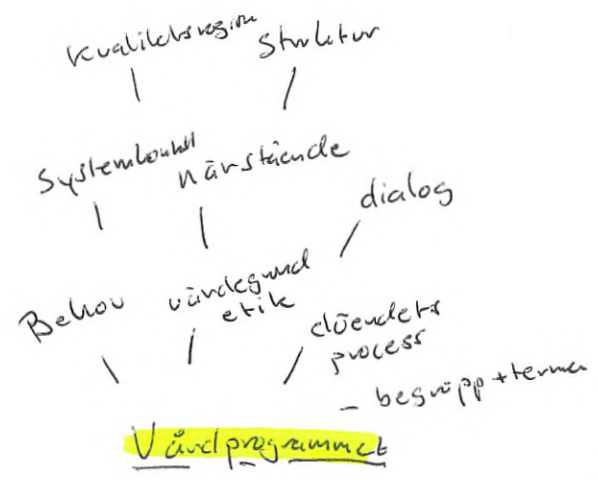 Kvalitetsregister
Struktur
Systemkontroll
närstående
dialog
Behov
värdegrund
etik
döendets
process
- begrepp + termer
Vårdprogrammet